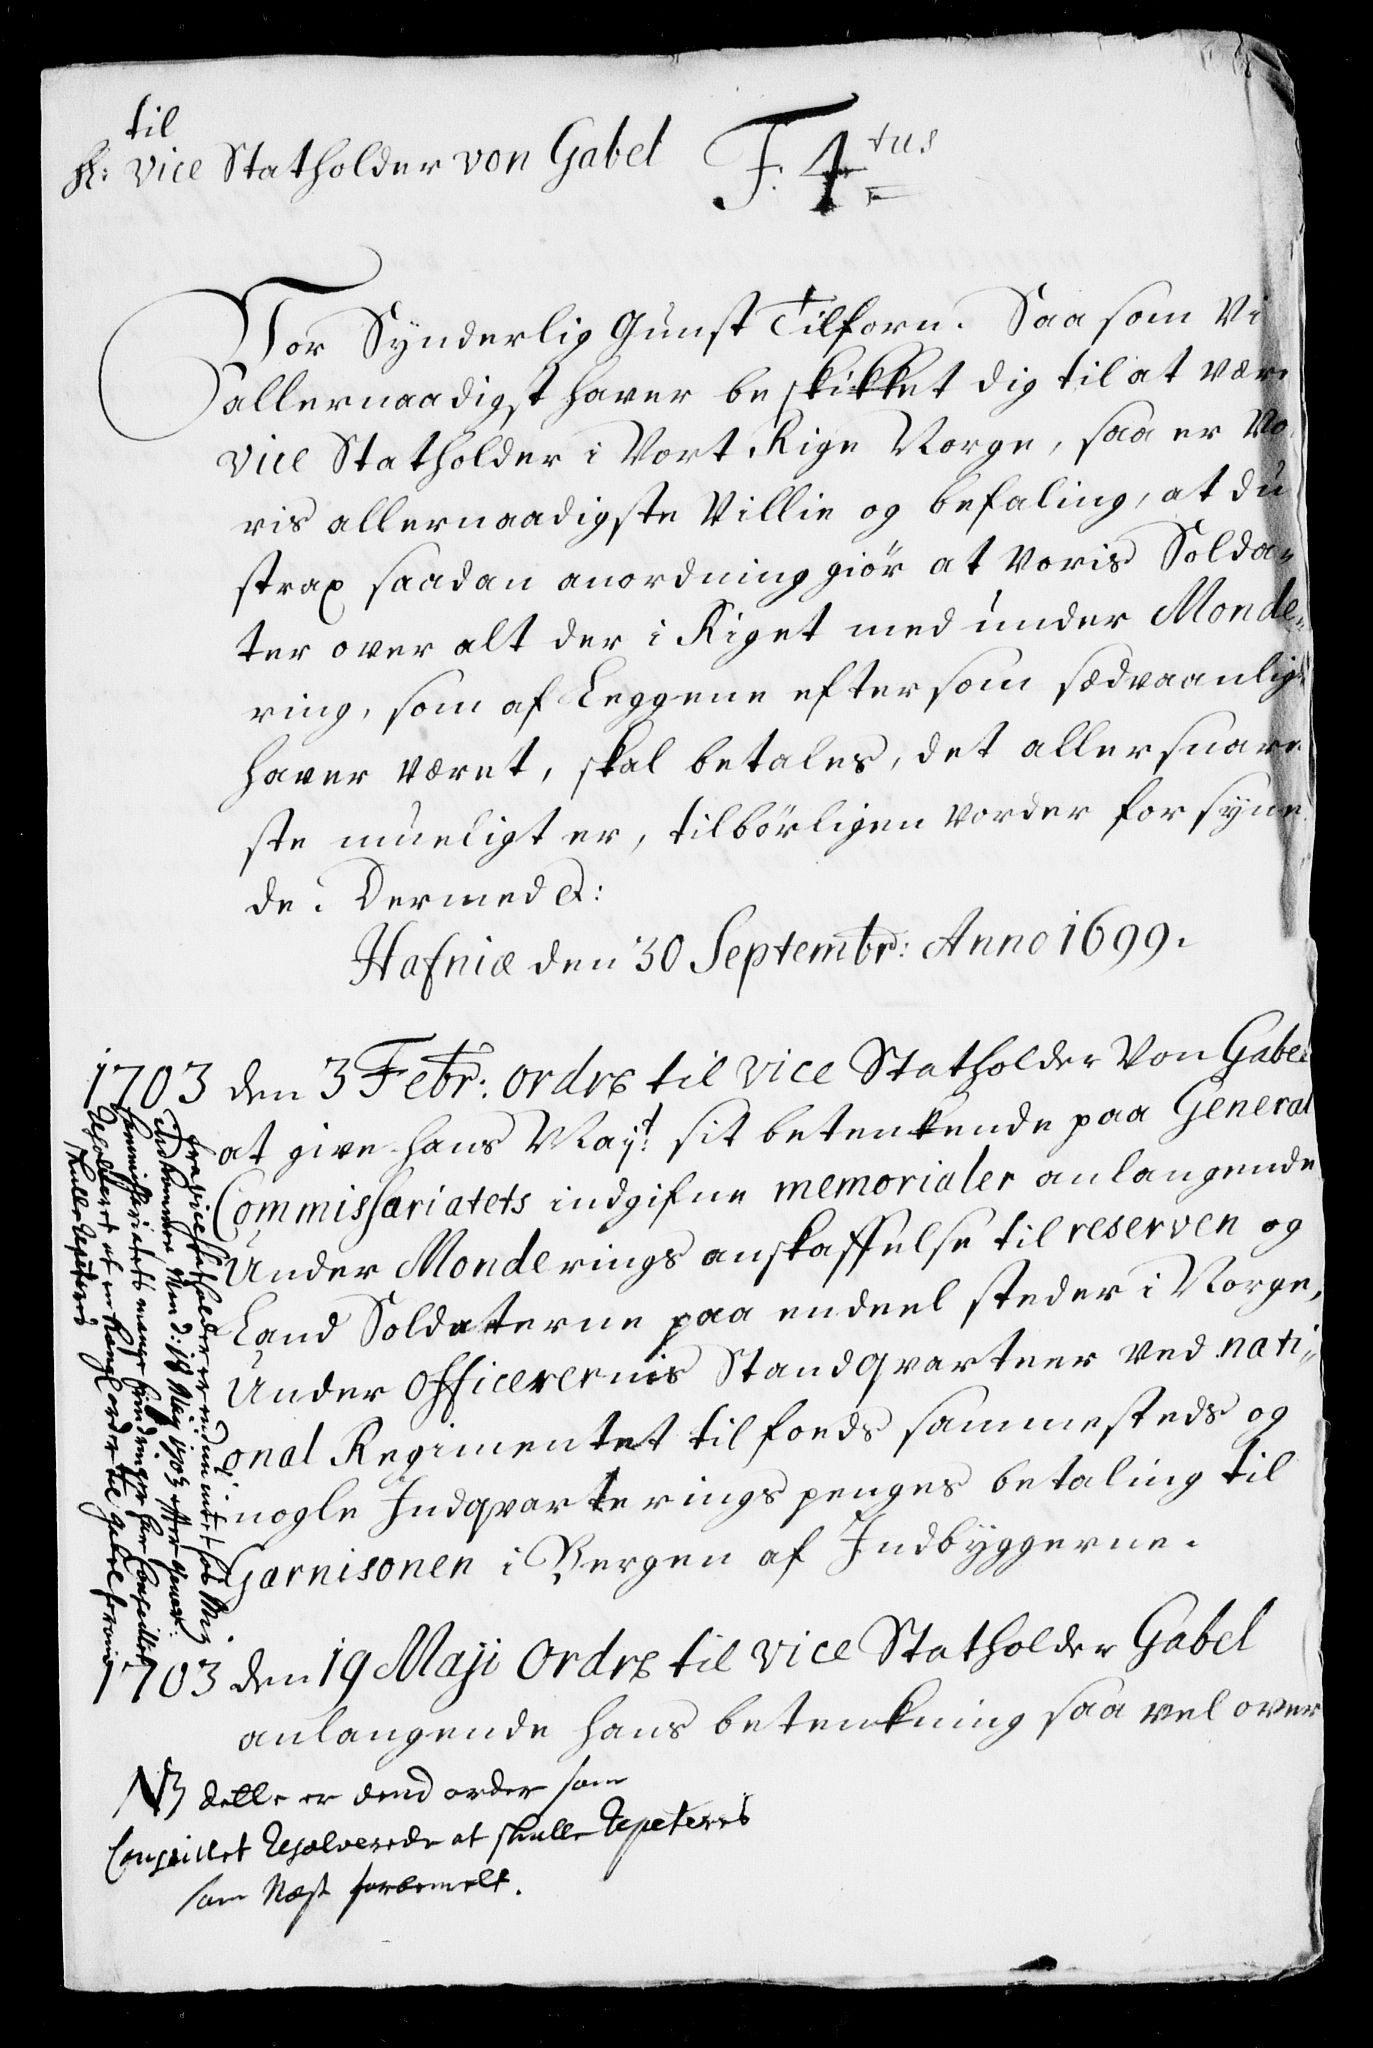 til
H: Vice Statholder von Gabel F. 4tus
Vor Synderlig Gunst Tilforn. Saa som Vi
allernaadigst haver beskikket dig til at være
Vice Statholder i Vort Rige Norge, saa er Vo,
ris allernaadigste Villie og befaling, at du
strax saadan anordning giør at Voris Solda,
ter over alt der i Riget med under Monde,,
ring, som af Leggene eftersom sædvaanligt
haver været, skal betales, det allersnare
ste mueligt er, tilbørligen vorder forsyne
de. Dermed &:
Hafniæ den 30 Septembr: Anno 1699.
1703 den 3 Febr: ordre til vice Statholder Von Gabel
at give hans Mayt: sit betenkende paa General
Commissariatets indgifne memorialer anlangende
Under Monderings anskaffelse til reserven og
Land Soldaterne paa endeel steder i Norge,
Under officerernis Standqvarteer ved nati,,
onal Regimentet til fods sammesteds og
nogle Indqvarterings penges betaling til
Garnisonen i Bergen af Indbyggerne.
fra viceStatholderen er endnu intet her
Indkommen Men d: 18 Maj 1703 efter General:
Commissariatets mange har Conseillet
Resolveret at en Kongl ordre til Gabel
skulle Repeteres
1703 den 19 Maji Ordre til vice Statholder Gabel
anlangende hans betenkning saa vel over
NB dette er dend order som
Conseillet Resolverede at skulle Repeteris
som Næst forbemelt.